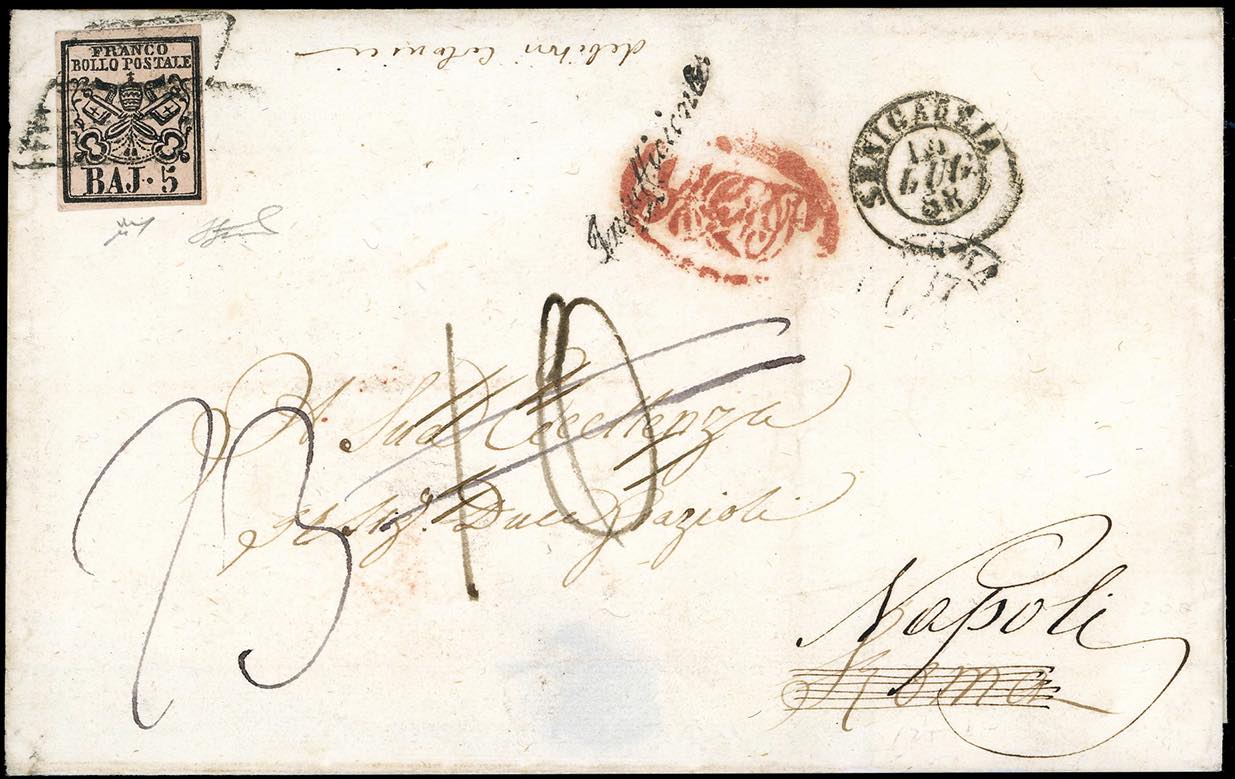 FRANCO
BOLLO POSTALE
BAJ. 5
debitori
Insufficiente
SENIGAGLIA
LUG
58
10
A Sua Eccellenza
Il Sig. Duca Grazioli
Napoli
Roma